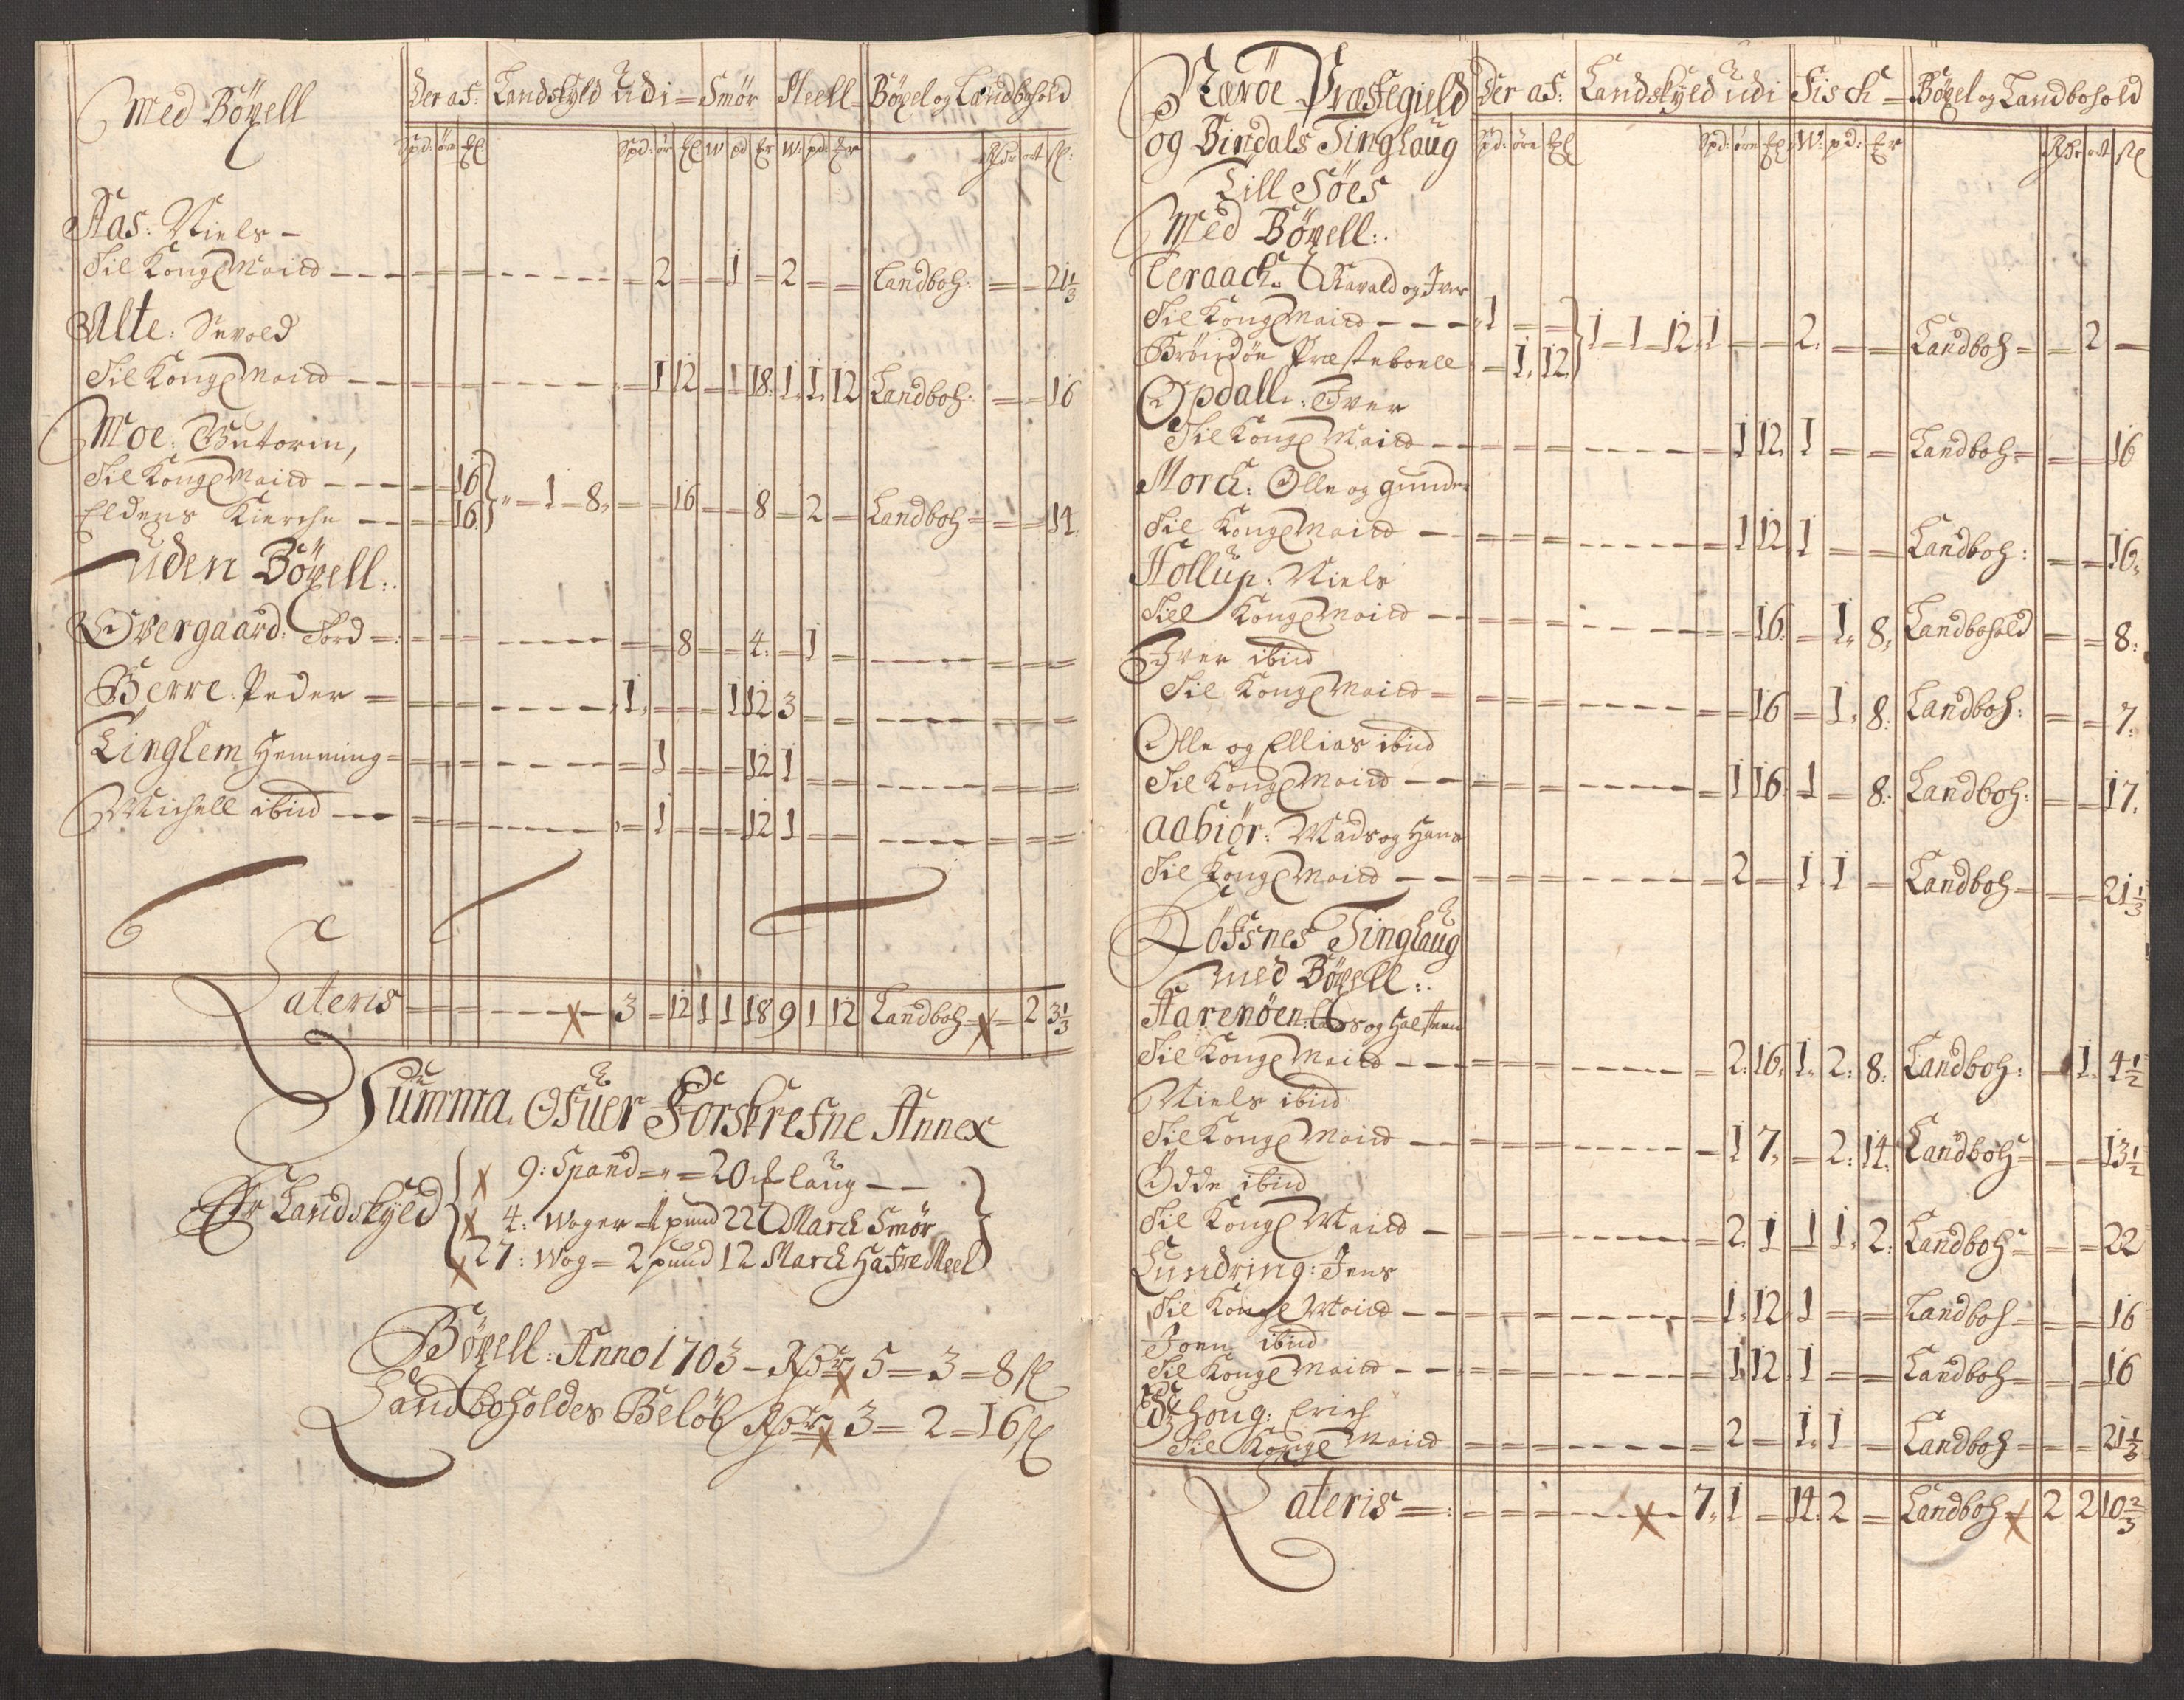 Med Böxell
Der af: Landskyld udi = Smör Meell = Böxel og Landbohold
Spd: öre El Spd: ör El W pd Er W: pd: Er Rdr ort sl:
Aas: Niels —
Til Kong Maitt — — — 2 1 2 Landboh: 21 1/3
Alte: Sevold
Til Kong Maitt — — 1 12 1 18 1 1 12 Landboh: 16
Moe: Guttorm,
Til Kong Maitt — — — 16
Eldens Kierche — — 16 1 8 16 8 2 Landboh = 14
uden Böxell:
Overgaard: Tord = 8 4 1
Berre: Peder = 1 1 12 3
Linglem Hemming = 1 12 1
Michell ibid — — 1 12 1
Lateris 3 12 1 1 18 9 1 12 Landboh = 2 3 1/3
Summa Ofuer Forskrefne Annex
Er Landskyld
9: Spand = " = 20 laug — —
4: Woger 1 pund 22 Marck Smör
27: Wog = 2 pund 12 Marck Hafre Meel
Böxell: Anno 1703 — Rdr 5 = 3 = 8 sl
Landboholdes Belöb Rdr 3 = 2 = 16 sl
Næröe Præstegield Der af: Landskyld udi Fisch = Böxel og Landbohold
og Bindals Tinglaug Spd: öre El Spd: öre El W: pd: Er Rdr ort sl
Till Söes
Med Böxell:
Teraack: Harald og Iver
Til Kong Maitt — — — 1
Brönöe Præsteboell 1 12 1 1 12 1 2 Landboh = 2 —
Opdall: Iver
Til Kong Maitt — 1 12 1 Landboh = 16
Morck: Olle og Gunder
Til Kong Maitt — 1 12 1 Landboh: 16
Hollup: Niels
Till Kong Maitt — 16 1 8 Landbohold 8
Iver ibid
Til Kong Maitt = 16 1 8 Landboh: 7
Olle og Ellias ibid
Til Kong Maitt — — 1 16 1 8 Landboh: 17
Aabiör: Mads og Hans
Til Kong Maitt — — 2 1 1 Landboh = 21 1/3
Föfsnes Tinglaug
med Böxell:
Aarenöen: Lars og Halsteen
Til Kong Maitt — — 2 16 1 2 8 Landboh: 1 4 1/2
Niels ibid
Til Kong Maitt — — 1 7 2 14 Landboh 13 1/2
Odde ibid
Til Kong Maitt — 2 1 1 1 2 Landboh = 22
Lundring: Jens
Til Kong Maitt — — 1 12 1 Landboh = 16
Joen ibid
Til Kong Maitt — — 1 12 1 Landboh = 16
Houg: Erich
Til Kong Maitt 2 1 1 Landboh = 21 1/3
Lateris = 7 1 14 2 Landboh 2 2 10 2/3